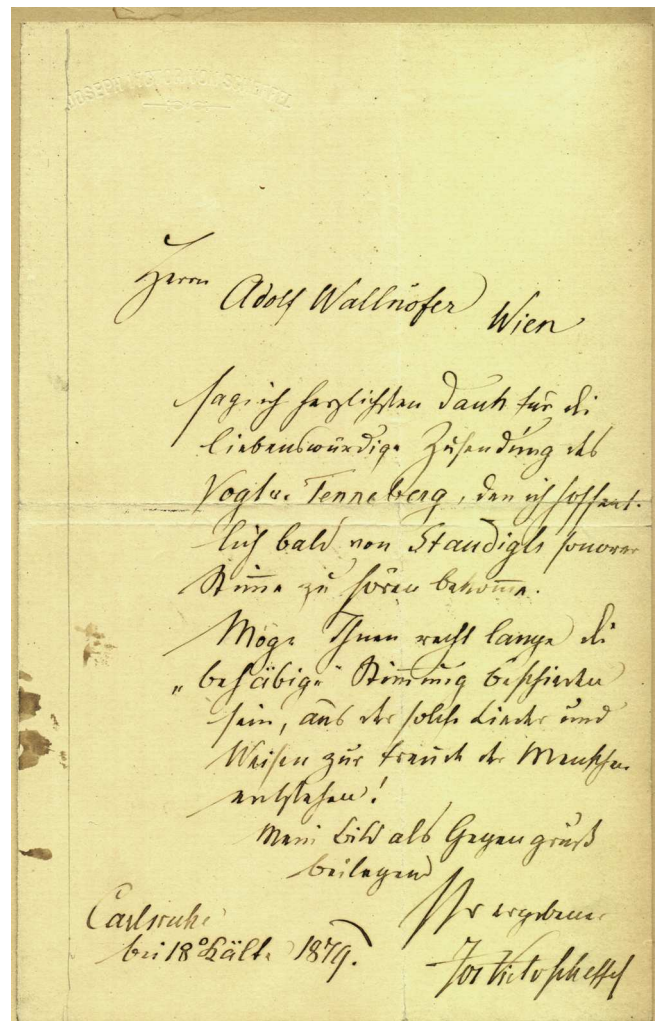 JOSEPH VICTOR VON SCHEFFEL
Herrn Adolf Wallnöfer Wien
sag ich herzlichsten Dank für die
liebenswürdige Zusendung des
Vogt v. Tenneberg, den ich hoffent-
lich bald von Staudigls sonorer
Stim̅e zu hören bekom̅e.
Möge Ihnen recht lange die
„behäbige" Stim̅ung beschieden
sein, aus der solche Lieder und
Weisen zur Freude der Menschen
entstehen!
Mein Bild als Gegengruß
beilegend
Ihr ergebener
Jos Victor Scheffel
Carlsruhe
bei 18° Kälte 1879.